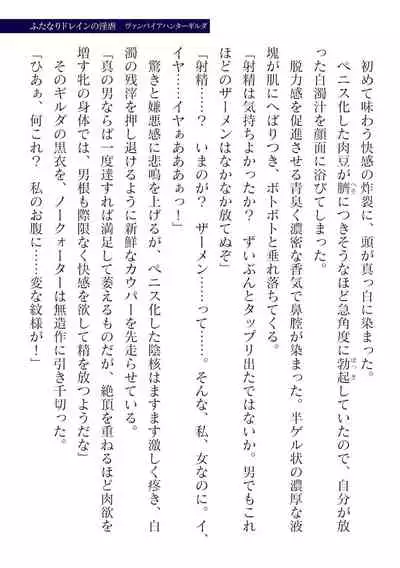 ふたなりドレインの淫虐　ヴァンパイアハンターギルダ
初めて味わう快感の炸裂に、頭が真っ白に染まった。
ペニス化した肉豆が臍につきそうなほど急角度に勃起していたので、自分が放
った白濁汁を顔面に浴びてしまった。
脱力感を促進させる青臭く濃密な香気で鼻腔が染まった。半ゲル状の濃厚な液
塊が肌にへばりつき、ボトボトと垂れ落ちてくる。
「射精は気持ちよかったか？　ずいぶんとタップリ出たではないか。男でもこれ
ほどのザーメンはなかなか放てぬぞ」
「射精……？　いまのが？　ザーメン……って……。そんな、私、女なのに。イ、
イヤ……イヤぁあああぁっ！」
驚きと嫌悪感に悲鳴を上げるが、ペニス化した陰核はますます激しく疼き、白
濁の残滓を押し退けるように新鮮なカウパーを先走らせている。
「真の男ならば一度達すれば満足して萎えるものだが、絶頂を重ねるほど肉欲を
増す牝の身体では、男根も際限なく快感を欲して精を放つようだな」
そのギルダの黒衣を、ノークォーターは無造作に引き千切った。
「ひあぁ、何これ？　私のお腹に……変な紋様が！」